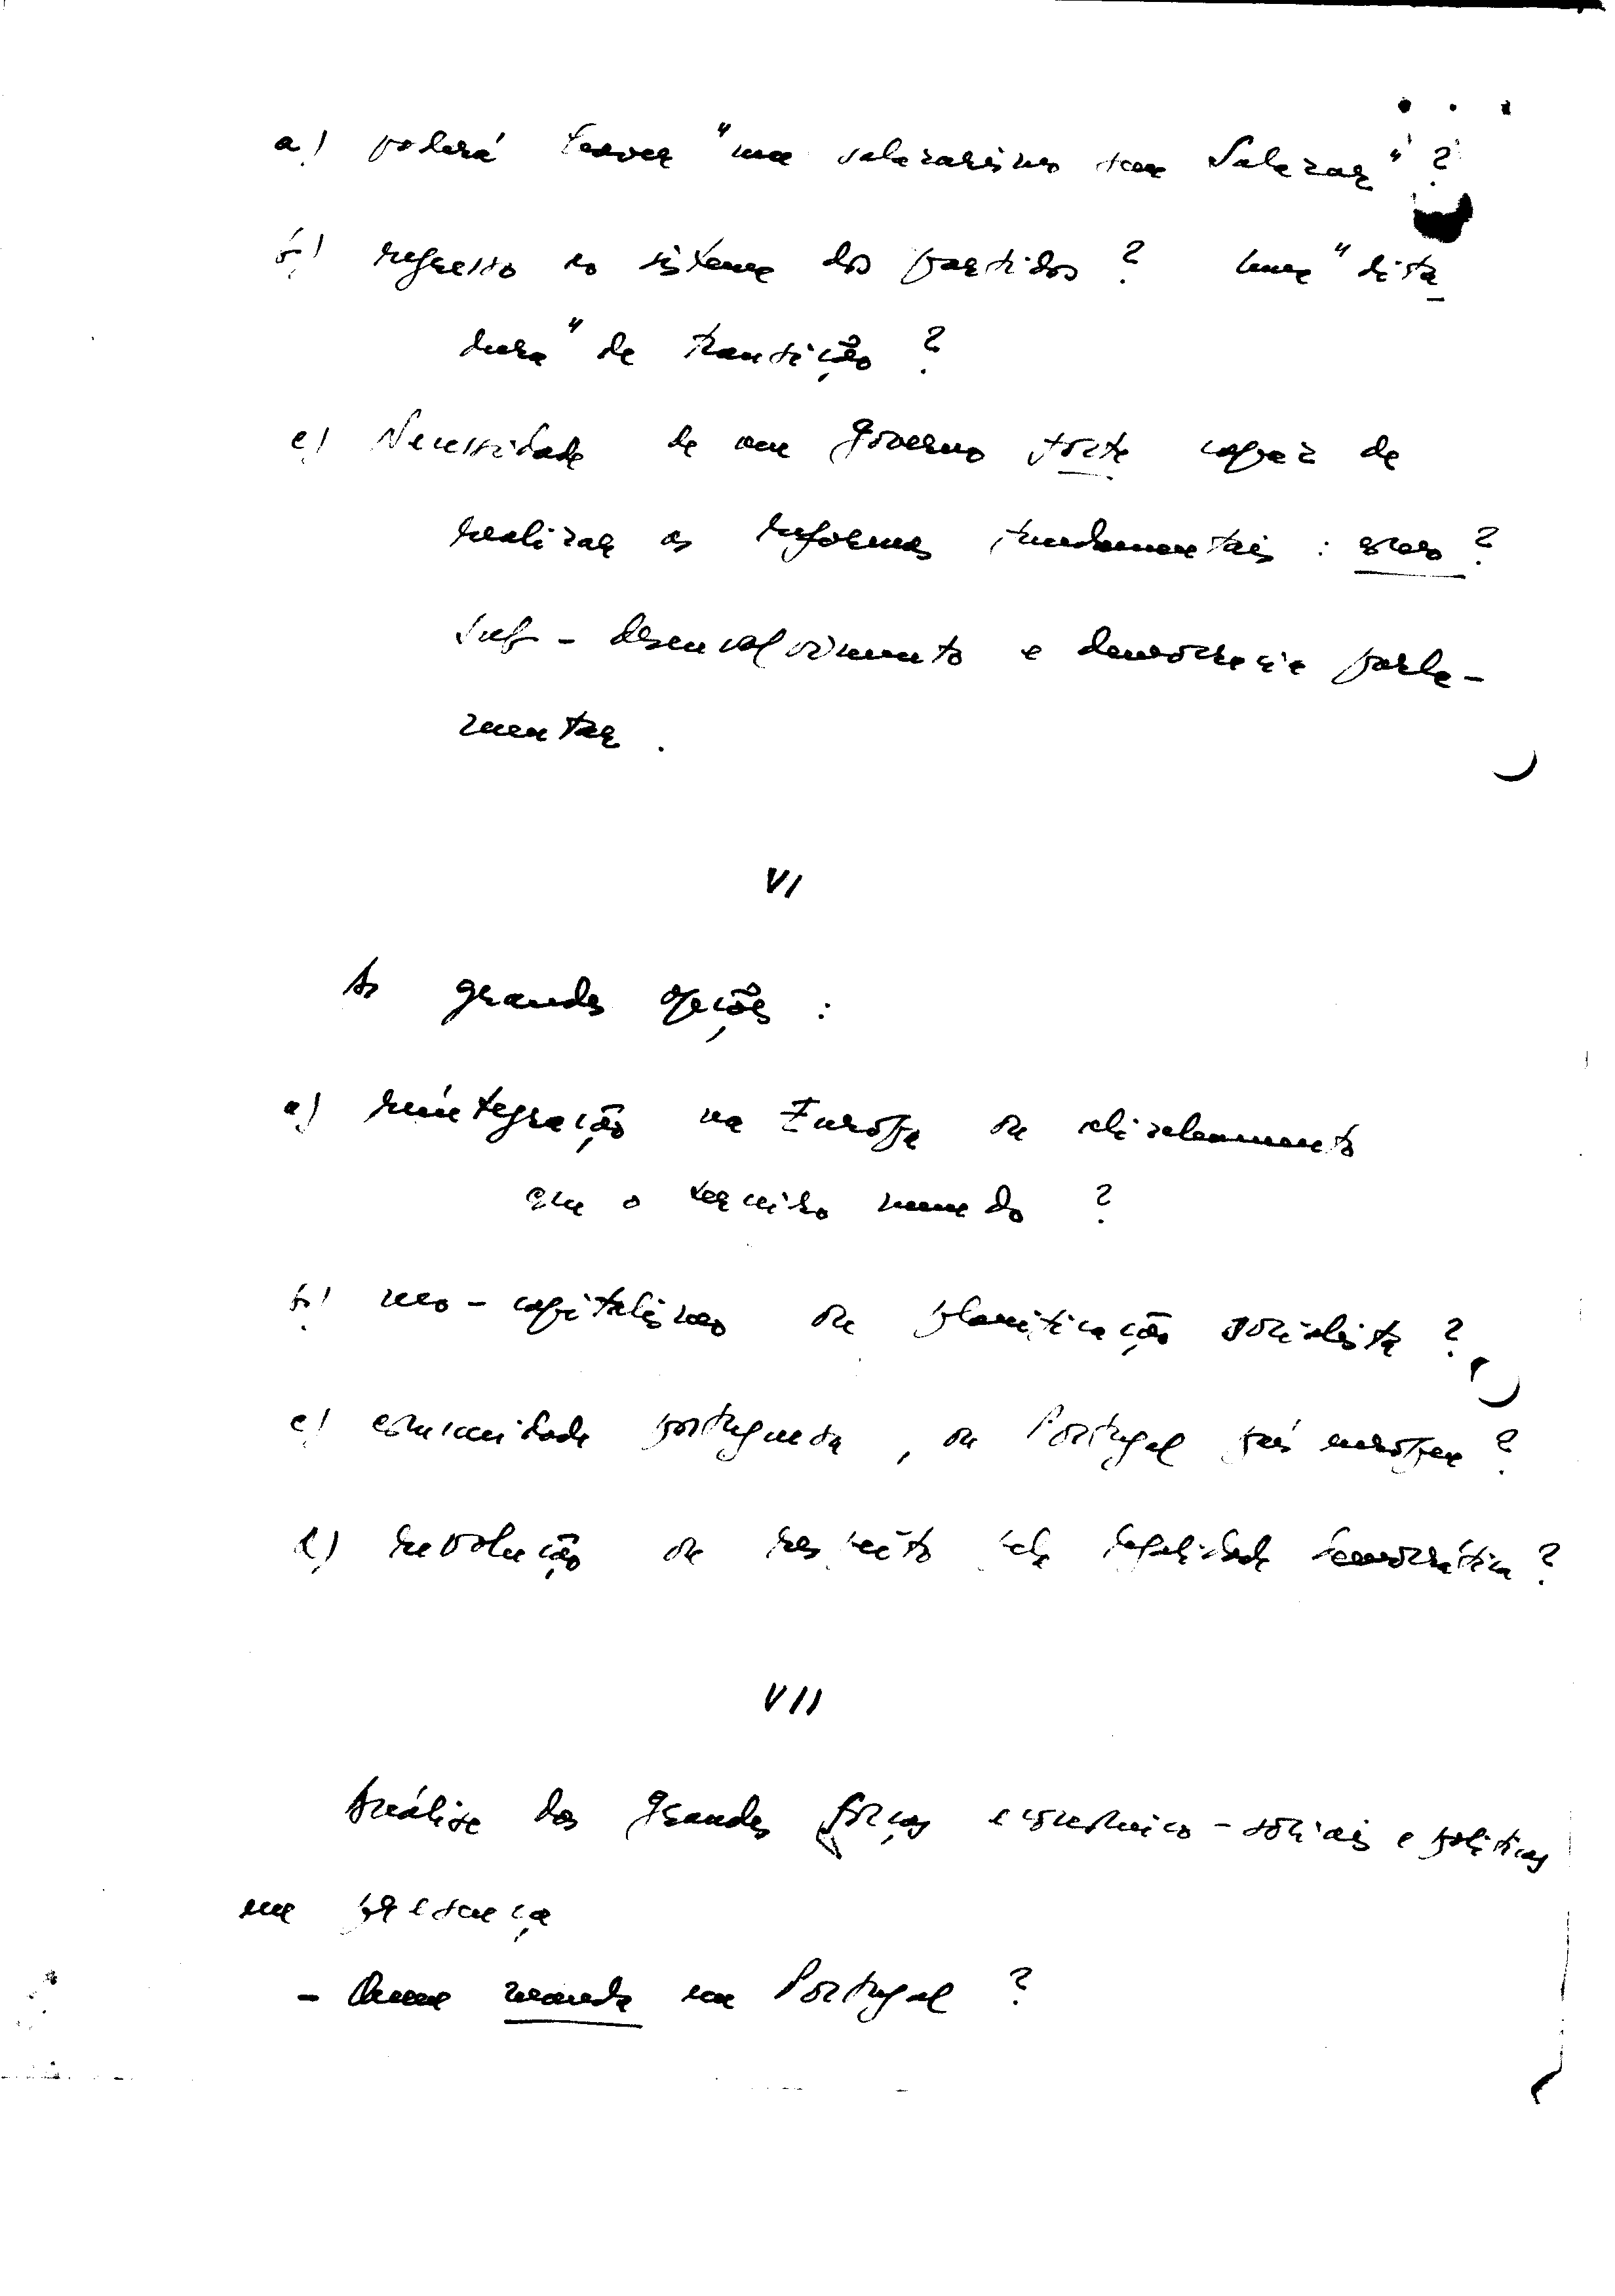 a) poderá haver "um salazarismo sem Salazar"?
b) regresso ao sistema dos partidos? Uma "dita
dura" de transição?
c) Necessidade de um governo forte capaz de
realizar as reformas fundamentais: como?
Sub-desenvolvimento e democracia parla-
mentar.
VI
As grandes opções:
a) reintegração na Europa ou alinhamento
com o terceiro mundo?
b) neo-capitalismo ou planificação socialista?
c) comunidade portuguesa, ou Portugal país europeu?
d) revolução ou respeito pela legalidade democrática?
VII
Análise das grandes forças económico-sociais e políticas
em presença
- Quem manda em Portugal?